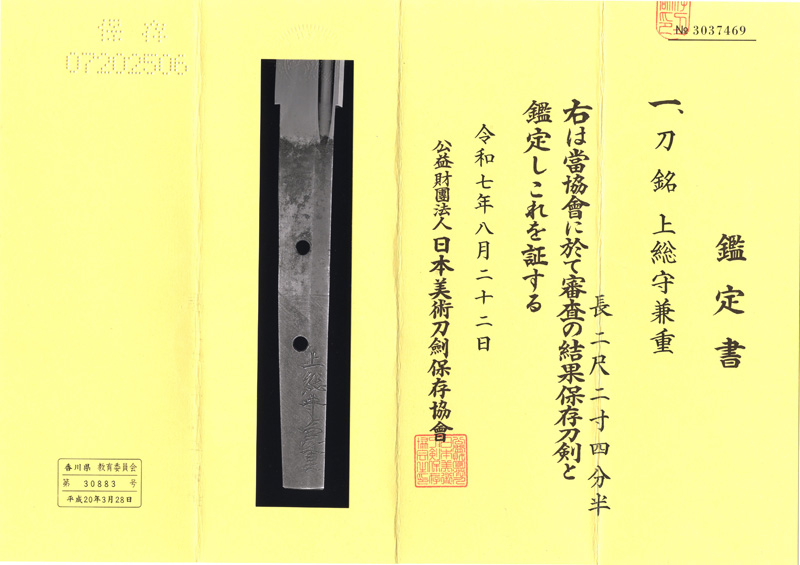 № 3037469
鑑定書
一、刀 銘 上総守兼重
長 二尺二寸四分半
右は當協會に於て審査の結果保存刀剣と
鑑定しこれを証する
令和七年八月二十二日
公益財團法人 日本美術刀劍保存協會
上総守兼重
保存
07202506
香川県 教育委員会
第 30883 号
平成20年3月28日